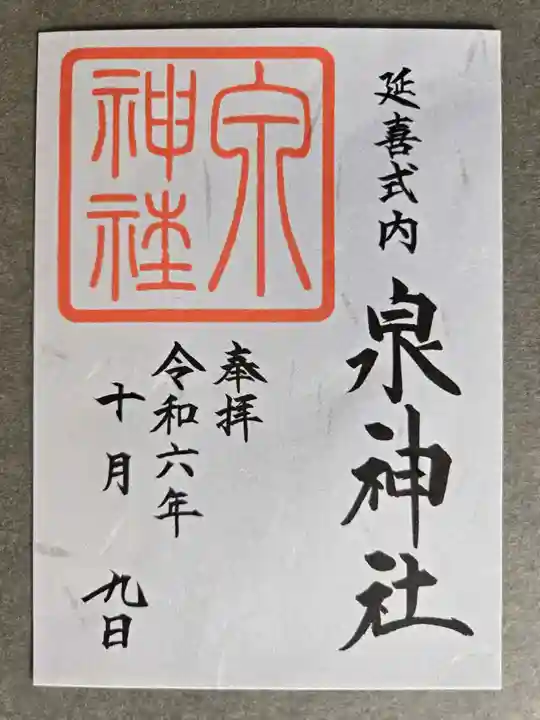 延喜式内 泉神社
奉拝
令和六年
十月 九日
泉
神社